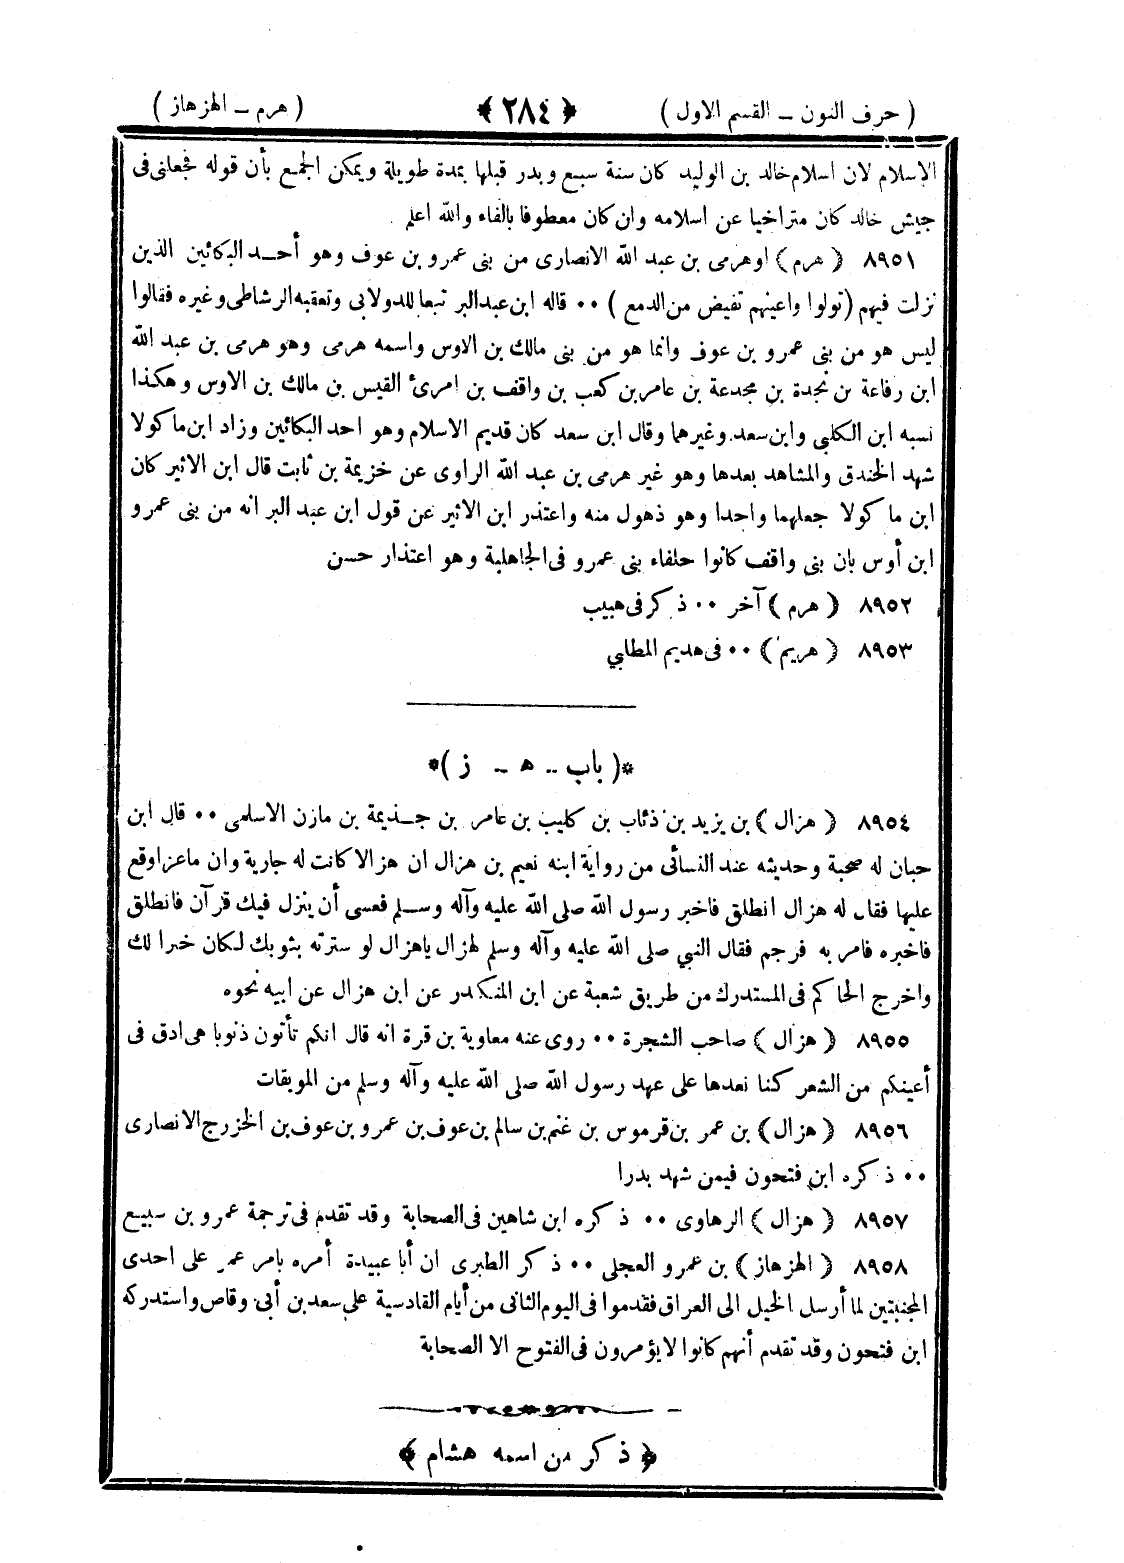 ( حرف النون ــ القسم الاول ) ﴿ ٢٨٤ ﴾ ( هرم ــ الهزهاز )
الاسلام لان اسلام خالد بن الوليد كان سنة سبع وبدر قبلها بمدة طويلة ويمكن الجمع بأن قوله فجعلنى فى
جيش خالد كان متراخيا عن اسلامه وان كان معطوفا بالفاء والله اعلم
٨٩٥١ ( هرم ) اوهرمى بن عبد الله الانصارى من بنى عمرو بن عوف وهو أحــد البكائين الذين
نزلت فيهم (تولوا واعينهم تفيض من الدمع ) ٠٠ قاله ابن عبد البر تبعا للدولابى وتعقبه الرشاطى وغيره فقالوا
ليس هو من بنى عمرو بن عوف وانما هو من بنى مالك بن الاوس واسمه هرمى وهو هرمى بن عبد الله
ابن رفاعة بن نجدة بن مجدعة بن عامر بن كعب بن واقف بن امرئ القيس بن مالك بن الاوس وهكذا
نسبه ابن الكلبى وابن سعد وغيرهما وقال ابن سعد كان قديم الاسلام وهو احد البكائين وزاد ابن ماكولا
شهد الخندق والمشاهد بعدها وهو غير هرمى بن عبد الله الراوى عن خزيمة بن ثابت قال ابن الاثير كان
ابن ماكولا جعلهما واحدا وهو ذهول منه واعتذر ابن الاثير عن قول ابن عبد البر انه من بنى عمرو
ابن أوس بان بنى واقف كانوا حلفاء بنى عمرو فى الجاهلية وهو اعتذار حسن
٨٩٥٢ ( هرم ) آخر ٠٠ ذكر فى هبيب
٨٩٥٣ ( هريم ) ٠٠ فى هديم المطلبي
*( باب .. ه ـ ز )*
٨٩٥٤ ( هزال ) بن يزيد بن ذئاب بن كليب بن عامر بن جــذيمة بن مازن الاسلمى ٠٠ قال ابن
حبان له صحبة وحديثه عند النسائى من رواية ابنه نعيم بن هزال ان هزالا كانت له جارية وان ماعزا وقع
عليها فقال له هزال انطلق فاخبر رسول الله صلى الله عليه وآله وســلم فعسى أن ينزل فيك قرآن فانطلق
فاخبره فامر به فرجم فقال النبي صلى الله عليه وآله وسلم لهزال ياهزال لو سترته بثوبك لكان خيرا لك
واخرج الحاكم فى المستدرك من طريق شعبة عن ابن المنكدر عن ابن هزال عن ابيه نحوه
٨٩٥٥ ( هزال ) صاحب الشجرة ٠٠ روى عنه معاوية بن قرة انه قال انكم تأتون ذنوبا هى ادق فى
أعينكم من الشعر كنا نعدها على عهد رسول الله صلى الله عليه وآله وسلم من الموبقات
٨٩٥٦ ( هزال ) بن عمر بن قرموس بن غنم بن سالم بن عوف بن عمرو بن عوف بن الخزرج الانصارى
٠٠ ذكره ابن فتحون فيمن شهد بدرا
٨٩٥٧ ( هزال ) الرهاوى ٠٠ ذكره ابن شاهين فى الصحابة وقد تقدم فى ترجمة عمرو بن سبيع
٨٩٥٨ ( الهزهاز ) بن عمرو العجلى ٠٠ ذكر الطبرى ان أبا عبيدة أمره بامر عمر على احدى
المجنبتين لما أرسل الخيل الى العراق فقدموا فى اليوم الثانى من أيام القادسية على سعد بن أبى وقاص واستدركه
ابن فتحون وقد تقدم أنهم كانوا لا يؤمرون فى الفتوح الا الصحابة
﴿ ذكر من اسمه هشام ﴾